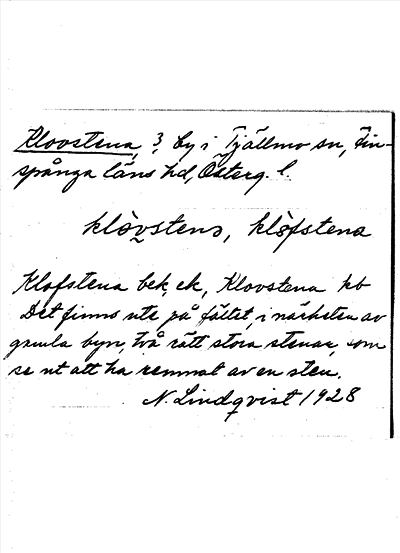 Klovstena, ?, by i Tjällmo sn, Fin-
spånga läns hd, Österg. l.
klòv̬stenɔ, klòfstena
Klofstena bek, ek, Klovstena kb
Det finns ute på fältet, i närheten av
gamla byn, två rätt stora stenar, som
se ut att ha remnat av en sten.
N. Lindqvist 1928